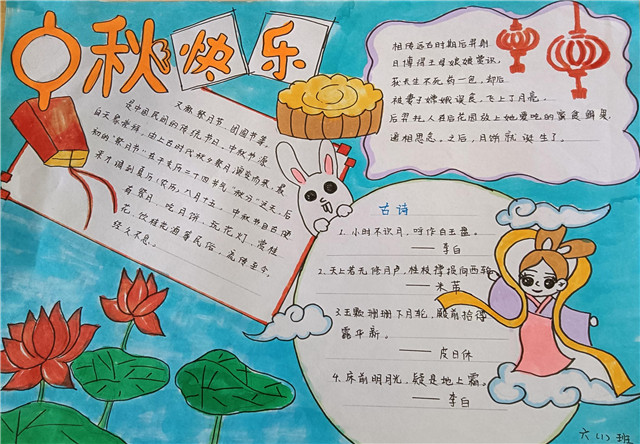 中秋快乐
又称祭月节、团圆节等。
是中国民间的传统节日。中秋节源
自天象崇拜，由上古时代秋夕祭月演变而来。最
初的“祭月节”在于干支历二十四节气“秋分”这天，后
来才调到夏历（农历）八月十五。中秋节自古便
有祭月、吃月饼、玩花灯、赏桂
花、饮桂花酒等民俗，流传至今，
经久不息。
相传远古时期后羿射
日博得王母娘娘赏识，
获长生不死药一包，却后
被妻子嫦娥误食，飞上了月亮。
后羿托人在后花园放上她爱吃的蜜食鲜果
遥相思恋。之后，月饼就诞生了。
古诗
1. 小时不识月，呼作白玉盘。
——李白
2. 天上若无修月户，桂枝撑损向西轮
——米芾
3. 玉颗珊珊下月轮，殿前拾得
露华新。
——皮日休
4. 床前明月光，疑是地上霜。
——李白
六（1）班